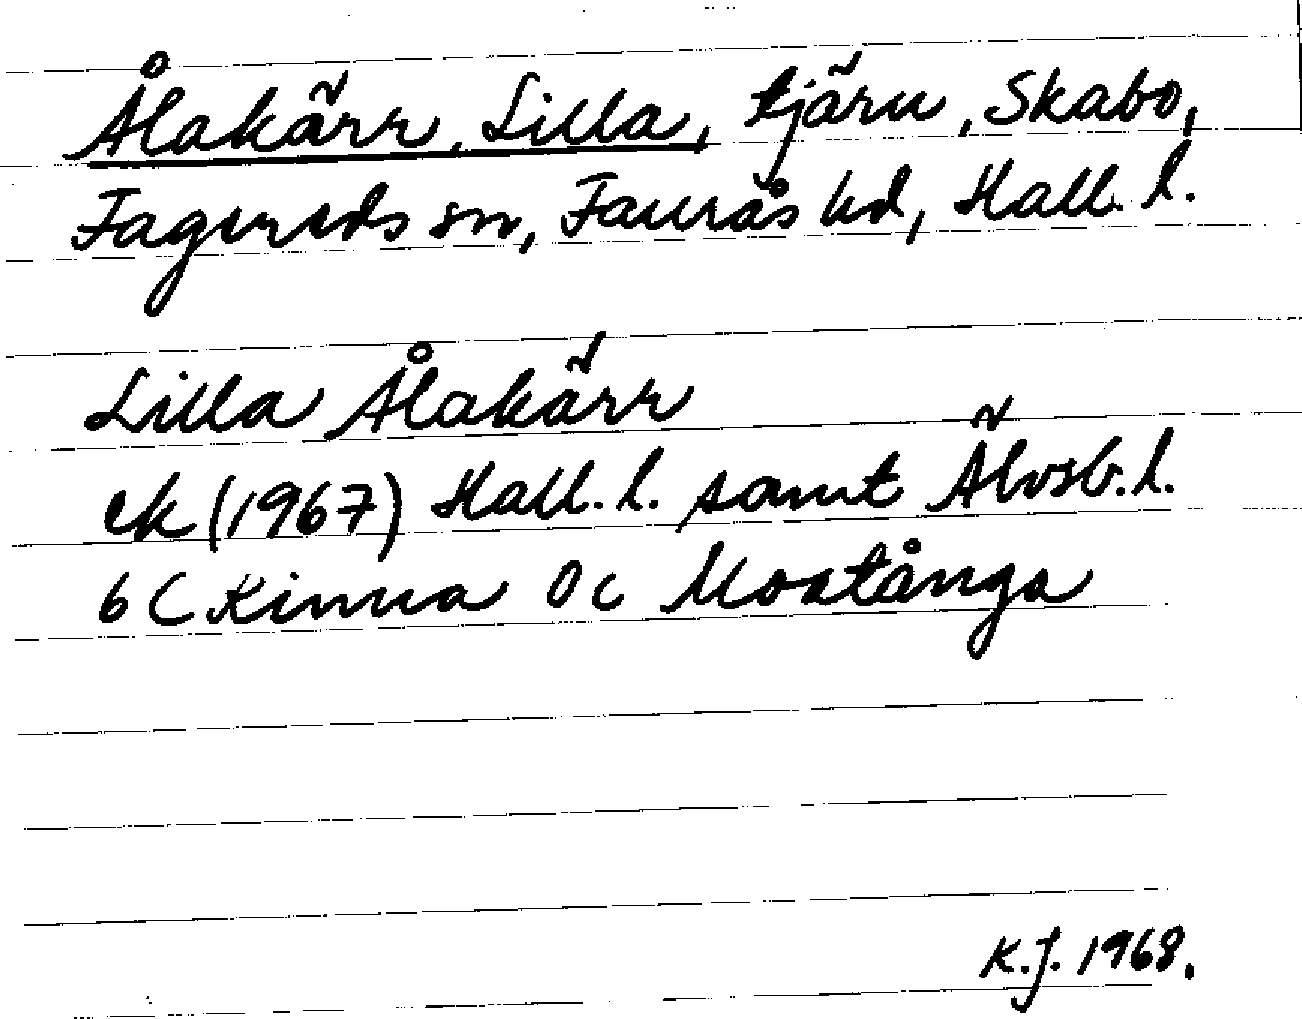 Ålakärr, Lilla, tjärn, Skabo,
Fagereds sn, Faurås hd, Hall. l.
Lilla Ålakärr
ek (1967) Hall. l. samt Älvsb. l.
6 C Kinna 0 c Mostånga
K.J. 1968.